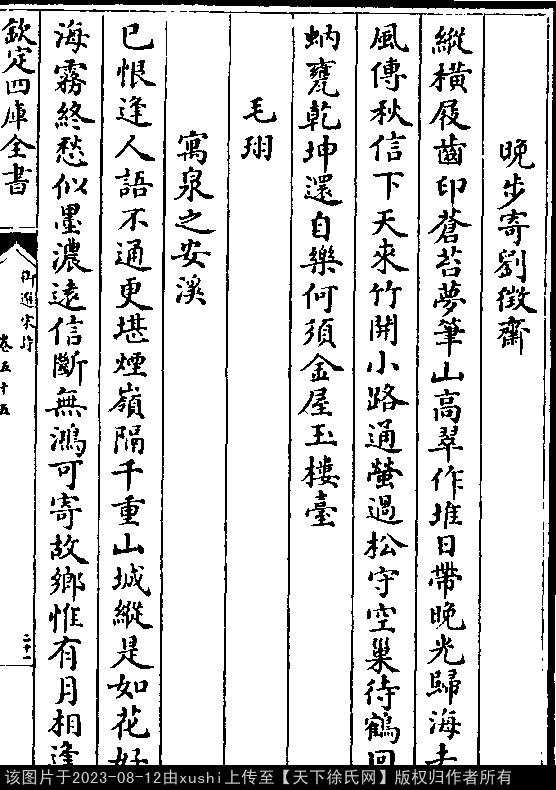 晚步寄劉徵齋
縱橫屐齒印蒼苔夢筆山高翠作堆日帶晚光歸海去
風傳秋信下天來竹開小路通螢過松守空巢待鶴回
蚋甕乾坤還自樂何須金屋玉樓臺
毛珝
寓泉之安溪
已恨逢人語不通更堪煙嶺隔千重山城縱是如花好
海霧終愁似墨濃遠信斷無鴻可寄故鄉惟有月相逢
欽定四庫全書
御選宋詩
卷五十五
二十一
该图片于2023-08-12由xushi上传至【天下徐氏网】版权归作者所有